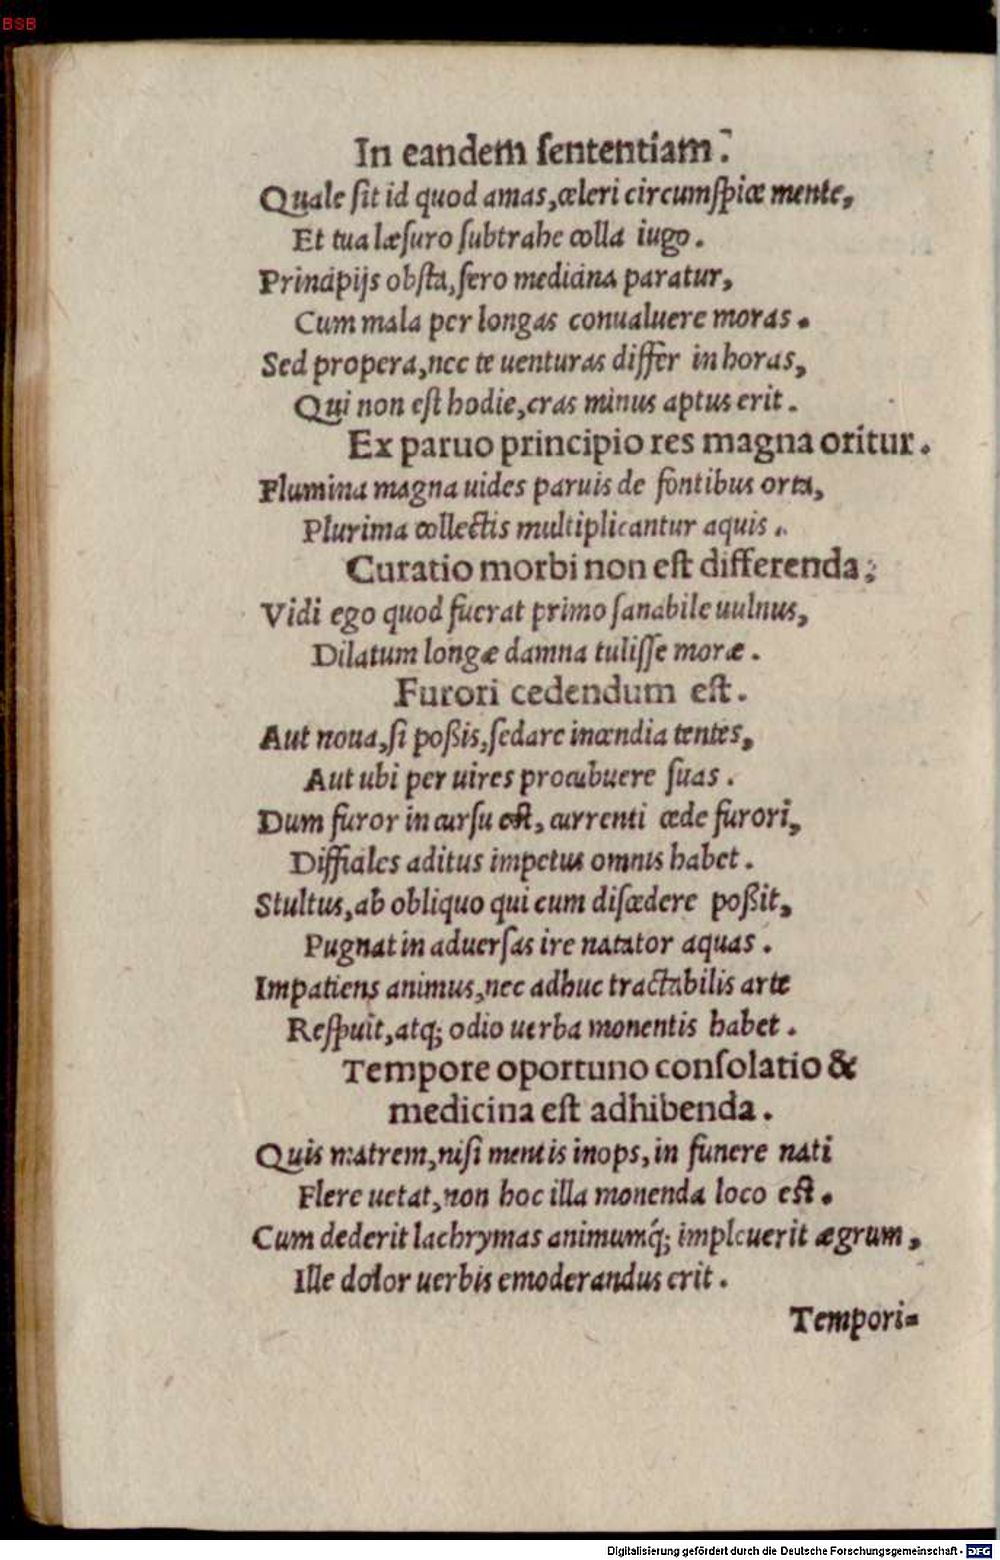 BSB
In eandem ſententiam.
Quale ſit id quod amas, celeri circumſpice mente,
Et tua læſuro ſubtrahe colla iugo.
Principijs obſta, ſero medicina paratur,
Cum mala per longas conualuere moras.
Sed propera, nec te uenturas differ in horas,
Qui non eſt hodie, cras minus aptus erit.
Ex paruo principio res magna oritur.
Flumina magna uides paruis de fontibus orta,
Plurima collectis multiplicantur aquis.
Curatio morbi non eſt differenda.
Vidi ego quod fuerat primo ſanabile uulnus,
Dilatum longæ damna tuliſſe moræ.
Furori cedendum eſt.
Aut noua, ſi poßis, ſedare incendia tentes,
Aut ubi per uires procubuere ſuas.
Dum furor in curſu eſt, currenti cede furori,
Difficiles aditus impetus omnis habet.
Stultus, ab obliquo qui cum diſcedere poßit,
Pugnat in aduerſas ire natator aquas.
Impatiens animus, nec adhuc tractabilis arte
Reſpuit, atq; odio uerba monentis habet.
Tempore oportuno conſolatio &
medicina eſt adhibenda.
Quis matrem, niſi mentis inops, in funere nati
Flere uetat, non hoc illa monenda loco eſt.
Cum dederit lachrymas animumq́; impleuerit ægrum,
Ille dolor uerbis emoderandus erit.
Tempori=
Digitalisierung gefördert durch die Deutsche Forschungsgemeinschaft - DFG